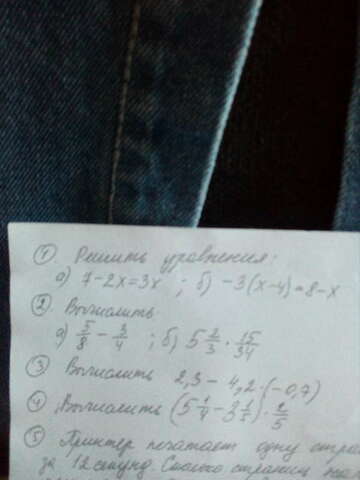 ① Решить уравнения:
а) 7-2x=3x ; б) -3(x-4)=8-x
② Вычислить
а) 5/8 - 3/4 ; б) 5 2/3 · 15/34
③ Вычислить 2,3 - 4,2·(-0,7)
④ Вычислить (5 1/4 - 3 1/5) · 2/5
⑤ Принтер печатает одну
за 12 секунд. Сколько страниц